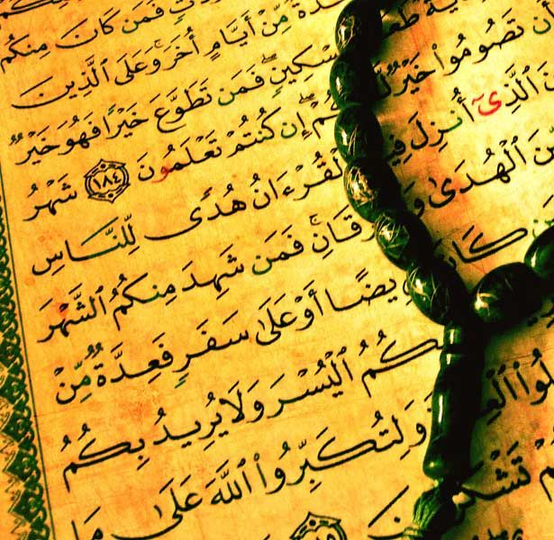 فَمَن كَانَ مِنكُم
مِّنْ أَيَّامٍ أُخَرَ وَعَلَى ٱلَّذِينَ
مِسْكِينٍ فَمَن تَطَوَّعَ خَيْرًا فَهُوَ خَيْرٌ
تَصُومُوا۟ خَيْرٌ لَّكُمْ إِن كُنتُمْ تَعْلَمُونَ ١٨٤ شَهْرُ
ٱلَّذِىٓ أُنزِلَ فِيهِ ٱلْقُرْءَانُ هُدًى لِّلنَّاسِ
ٱلْهُدَىٰ وَ رْقَانِ فَمَن شَهِدَ مِنكُمُ ٱلشَّهْرَ
كَانَ يضًا أَوْ عَلَىٰ سَفَرٍ فَعِدَّةٌ مِّنْ
بِكُمُ ٱلْيُسْرَ وَلَا يُرِيدُ بِكُمُ
وَلِتُكَبِّرُوا۟ ٱللَّهَ عَلَىٰ مَا
تَشْكُرُونَ